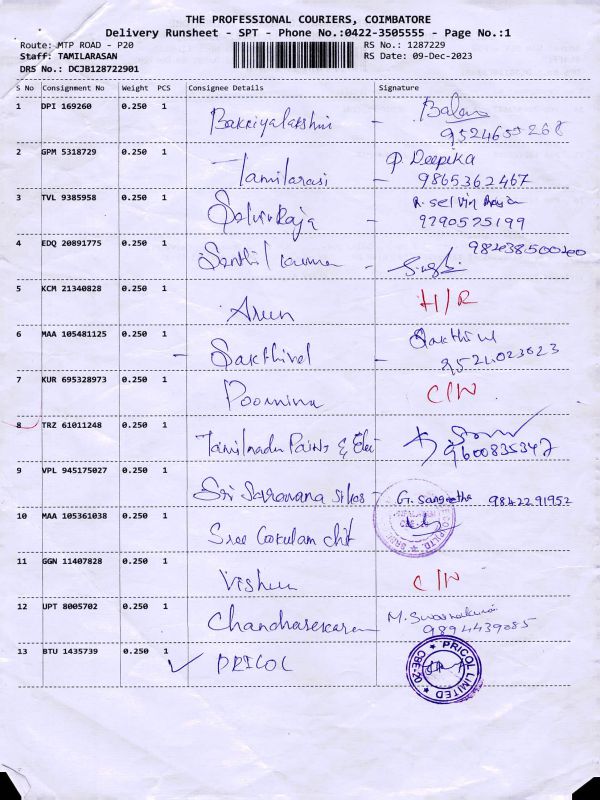 THE PROFESSIONAL COURIERS, COIMBATORE
Delivery Runsheet - SPT - Phone No.:0422-3505555 - Page No.:1
Route: MTP ROAD - P20 RS No.: 1287229
Staff: TAMILARASAN RS Date: 09-Dec-2023
DRS No.: DCJB128722901
S No Consignment No Weight PCS Consignee Details Signature
1 DPI 169260 0.250 1 Bakkiyalakshmi -
9524655268
2 GPM 5318729 0.250 1 Tamilarasi - P. Deepika
9865362467
3 TVL 9385958 0.250 1 SelvinRaja - R. Selvin
9790575199
4 EDQ 20891775 0.250 1 Senthil kumar -
5 KCM 21340828 0.250 1 Arun H/R
6 MAA 105481125 0.250 1 - Sakthivel - Sakthivel
7 KUR 695328973 0.250 1 Poornima C/N
8 TRZ 61011248 0.250 1 Tamilnadu Paints & Elec
9600835347
9 VPL 945175027 0.250 1 Sri Saravana Silks - G. Sangeetha 9842291952
10 MAA 105361038 0.250 1 Sree Gokulam chit
11 GGN 11407828 0.250 1 Vishnu C/N
12 UPT 8005702 0.250 1 Chandrasekaran M.
9894439085
13 BTU 1435739 0.250 1 ✓ PRICOL
PRICOL LIMITED
CBE-20